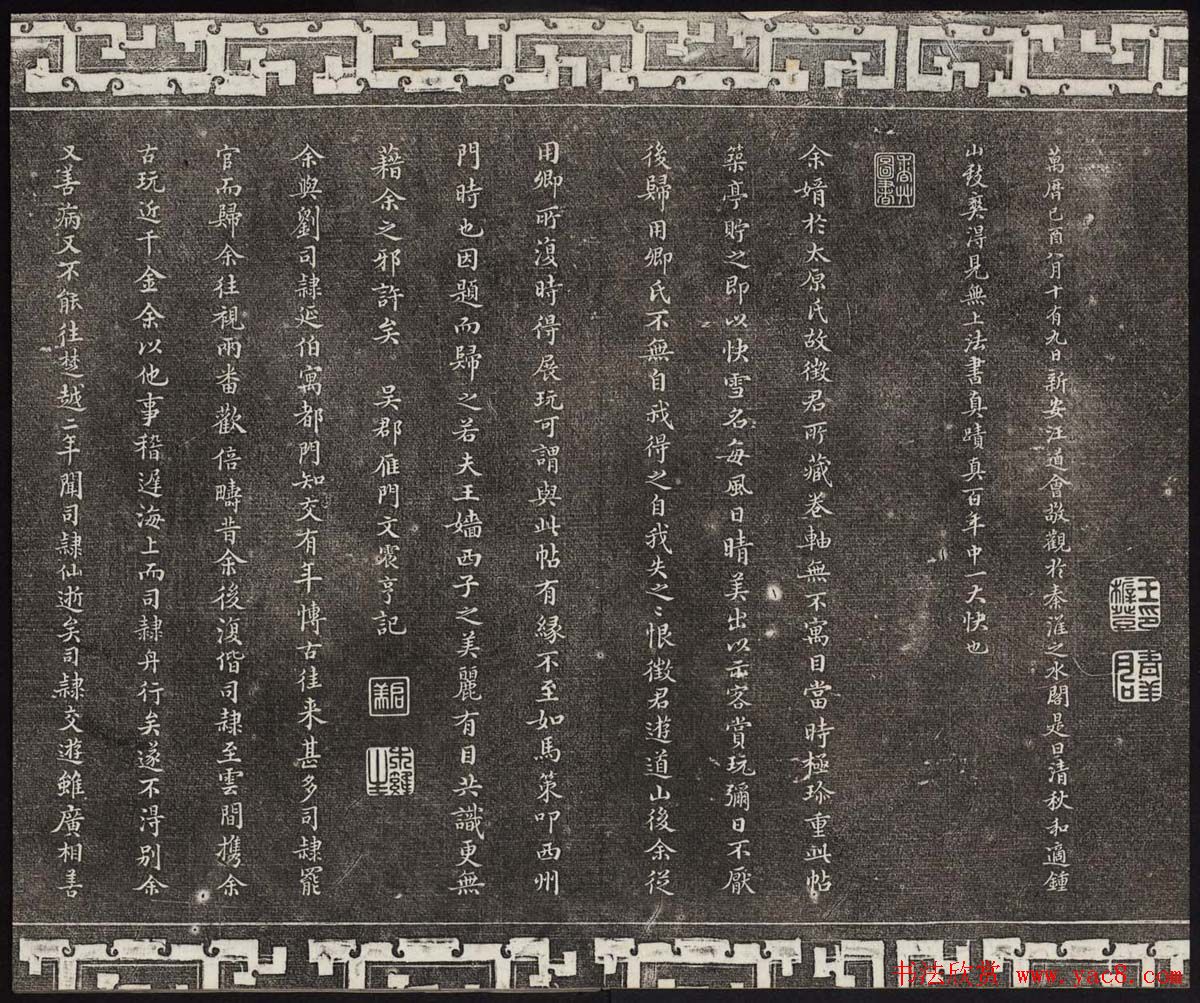 萬曆己酉八月十有九日新安汪道會敬觀於秦淮之水閣是日清秋和適鍾
山發爽淂見無上法書真蹟真百年中一大快也
余婿於太原氏故徵君所藏卷軸無不寓目當時極珍重此帖
築亭貯之即以快雪名每風日晴美出以示客賞玩彌日不厭
後歸用卿氏不無自我得之自我失之〻恨徵君遊道山後余從
用卿所復時得展玩可謂與此帖有緣不至如馬策叩西州
門時也因題而歸之若夫王嬙西子之美麗有目共識更無
藉余之邪許矣 吳郡雁門文震亨記
余與劉司隸延伯寓都門知交有年慱古往来甚多司隸罷
官而歸余往視兩番歡倍疇昔余後復偕司隸至雲間携余
古玩近千金余以他事稽遲海上而司隸舟行矣遂不淂别余
又善病又不能往楚越二年聞司隸仙逝矣司隸交遊雖廣相善
书法欣赏 www.yac8.com